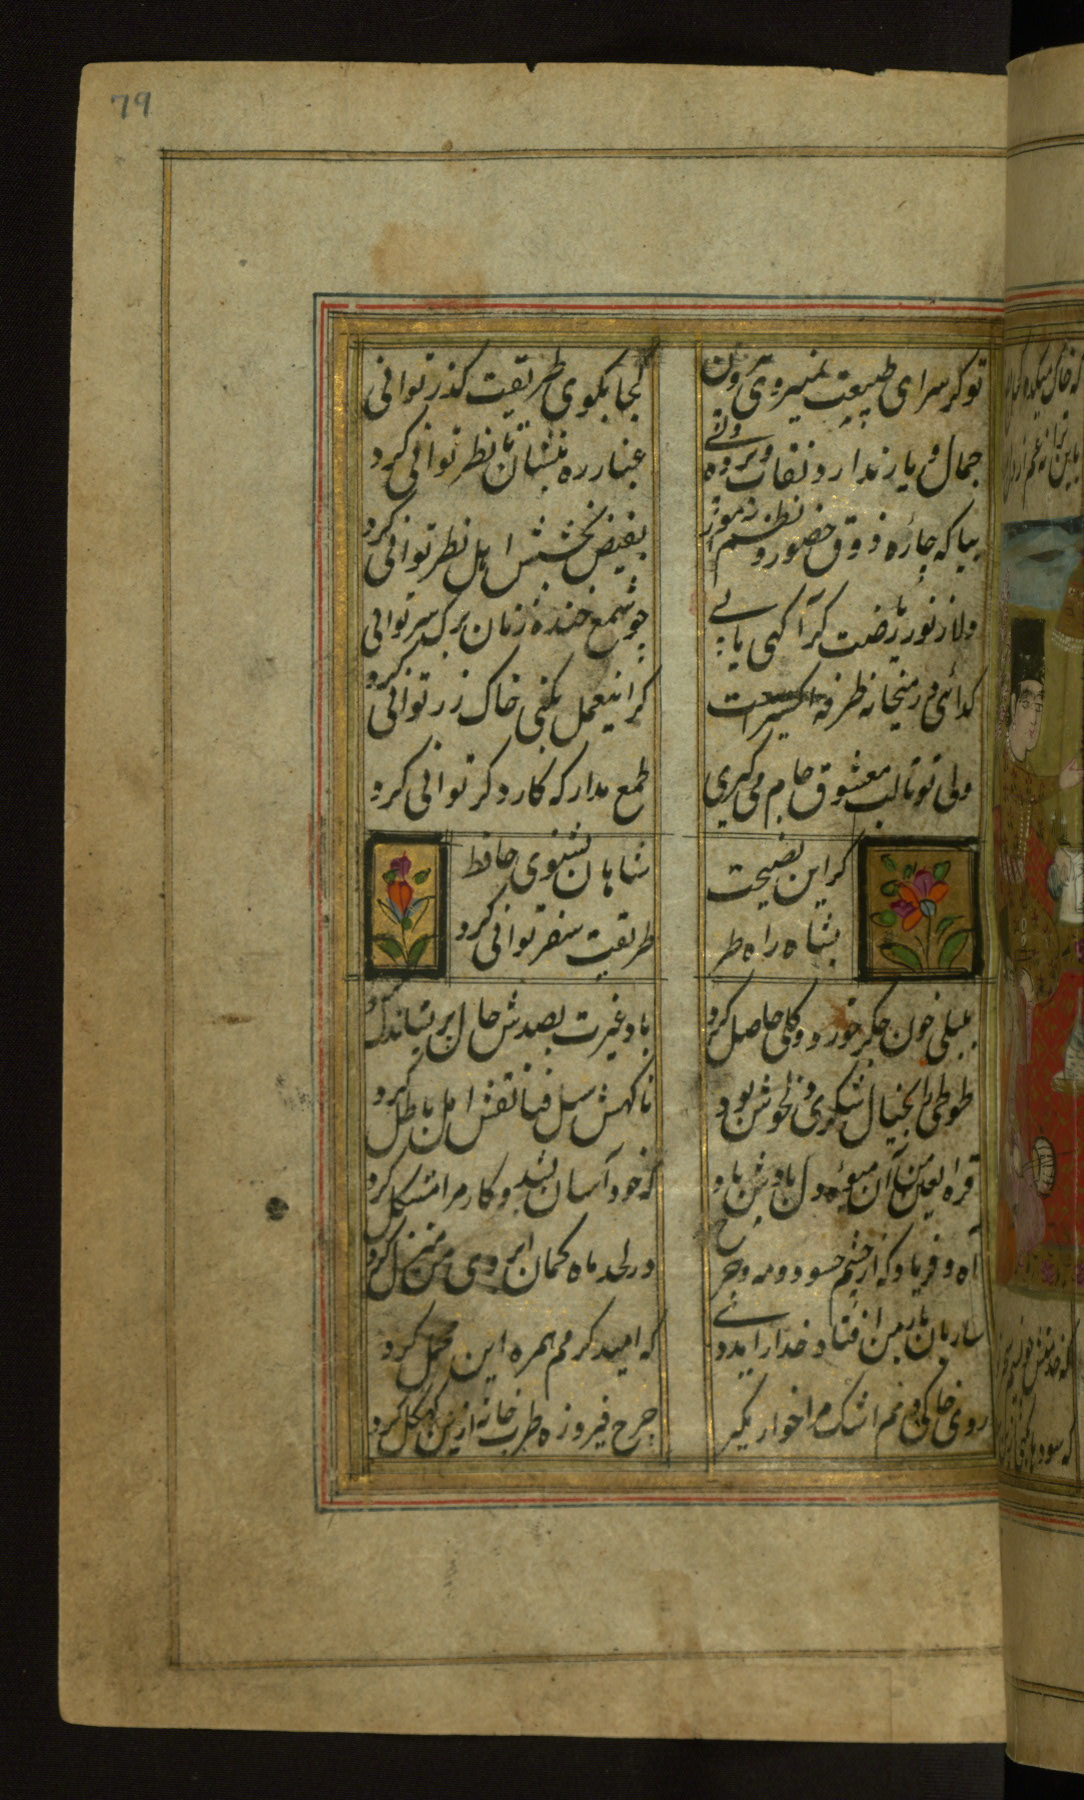 79
تو کز سرای طبیعت نمیروی بیرون
کجا بکوی طریقت گذر توانی
جمال یار ندارد نقاب و پرده ولی
غبار ره بنشان تا نظر توانی کرد
بیا که چاره ذوق حضور و نظم امور
بفیض بخشش اهل نظر توانی کرد
دلا ز نور ریاضت گر آگهی یابی
چو شمع خنده زنان ترک سر توانی کرد
گدائی در میخانه طرفه اکسیر است
گر این عمل بکنی خاک زر توانی
ولی تو تا لب معشوق و جام می گیری
طمع مدار که کار دگر توانی کرد
گر این نصیحت
شاهان بشنوی حافظ
بشاه راه طر
طریقت سفر توانی کرد
بلبلی خون جگر خورد و گلی حاصل کرد
باد غیرت بصدش خال پریشاندل
طوطی را بخیال شکری دل خوش بود
ناگهش سیل فنا نقش امل باطل کرد
قره العین من آن میوه دل یادش باد
که خود آسان بشد و کار مرا مشکل کرد
آه و فریاد که از چشم حسود مه و چرخ
در لحد ماه کمان ابروی من منزل کرد
ساربان بار من افتاد خدا را مددی
که امید کرمم همره این محمل کرد
روی خاکی و نم اشک مرا خوار مگیر
چرخ فیروزه طربخانه ازین کهگل کرد